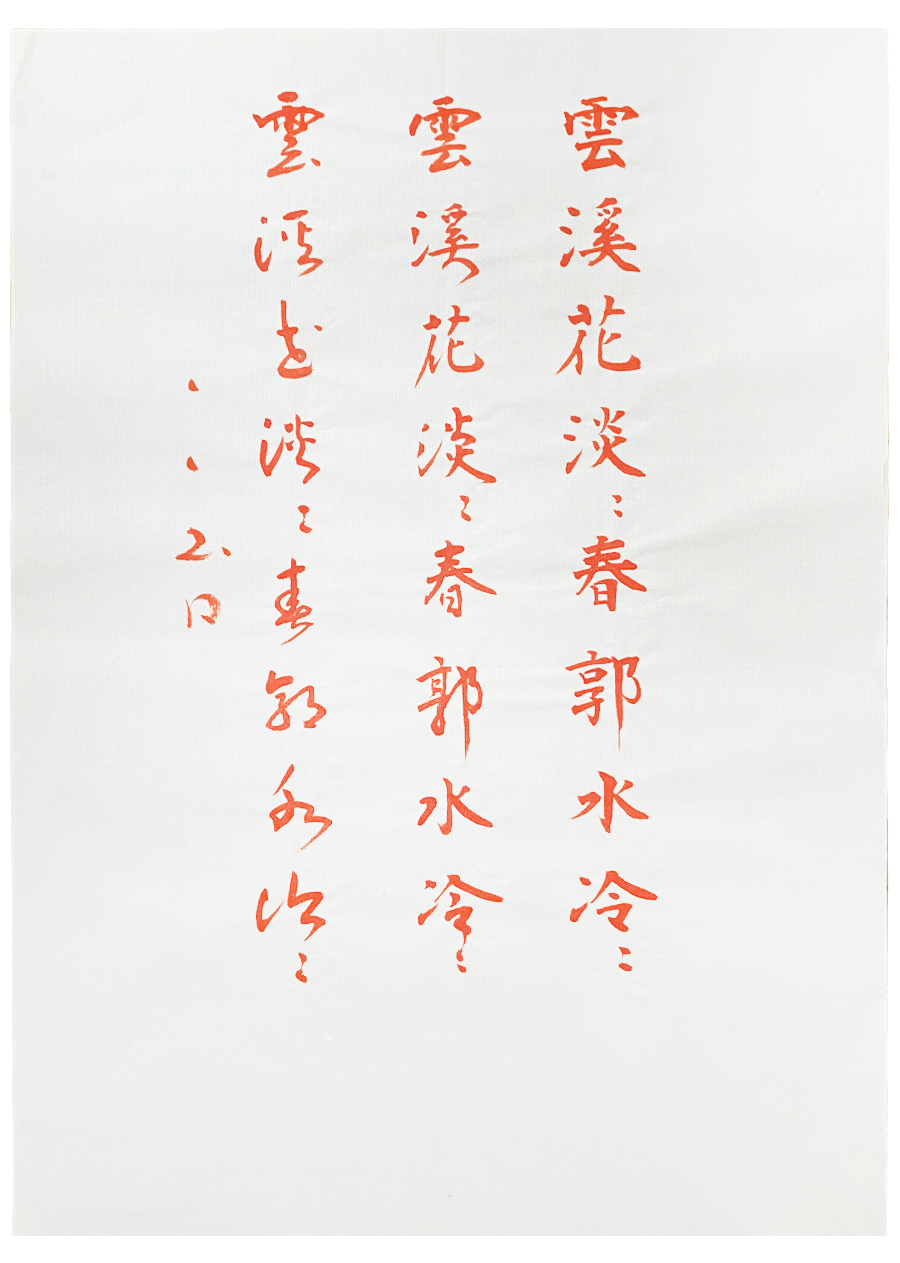 雲溪花淡〻春郭水冷〻
雲溪花淡〻春郭水冷〻
雲溪花淡〻春郭水冷〻